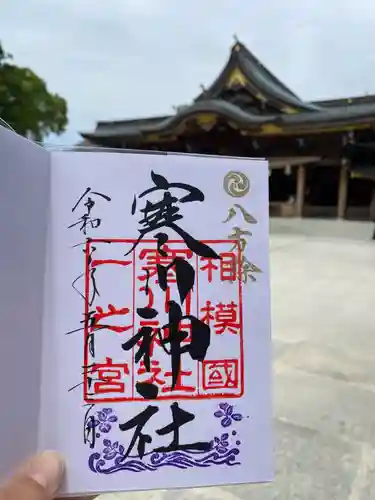 八方除
寒川神社
相模國
寒川神社
一之宮
令和六年五月二十一日